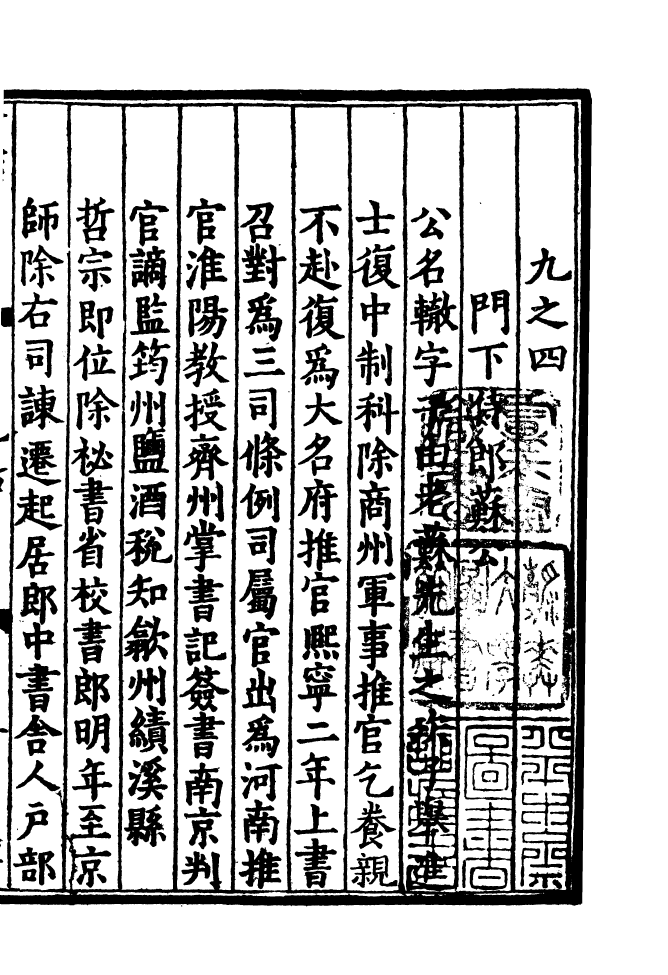 九之四
門下侍郎蘇公
公名轍字子由老蘇先生之次子舉進
士復中制科除商州軍事推官乞養親
不赴復爲大名府推官熙寧二年上書
召對爲三司條例司屬官出爲河南推
官淮陽教授齊州掌書記簽書南京判
官謫監筠州鹽酒稅知歙州績溪縣
哲宗即位除祕書省校書郎明年至京
師除右司諫遷起居郎中書舍人戶部